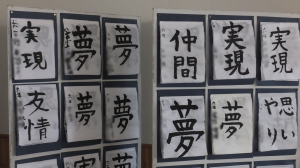 実現
夢
夢
仲間
実現
実現
友情
夢
夢
夢
夢
思いやり